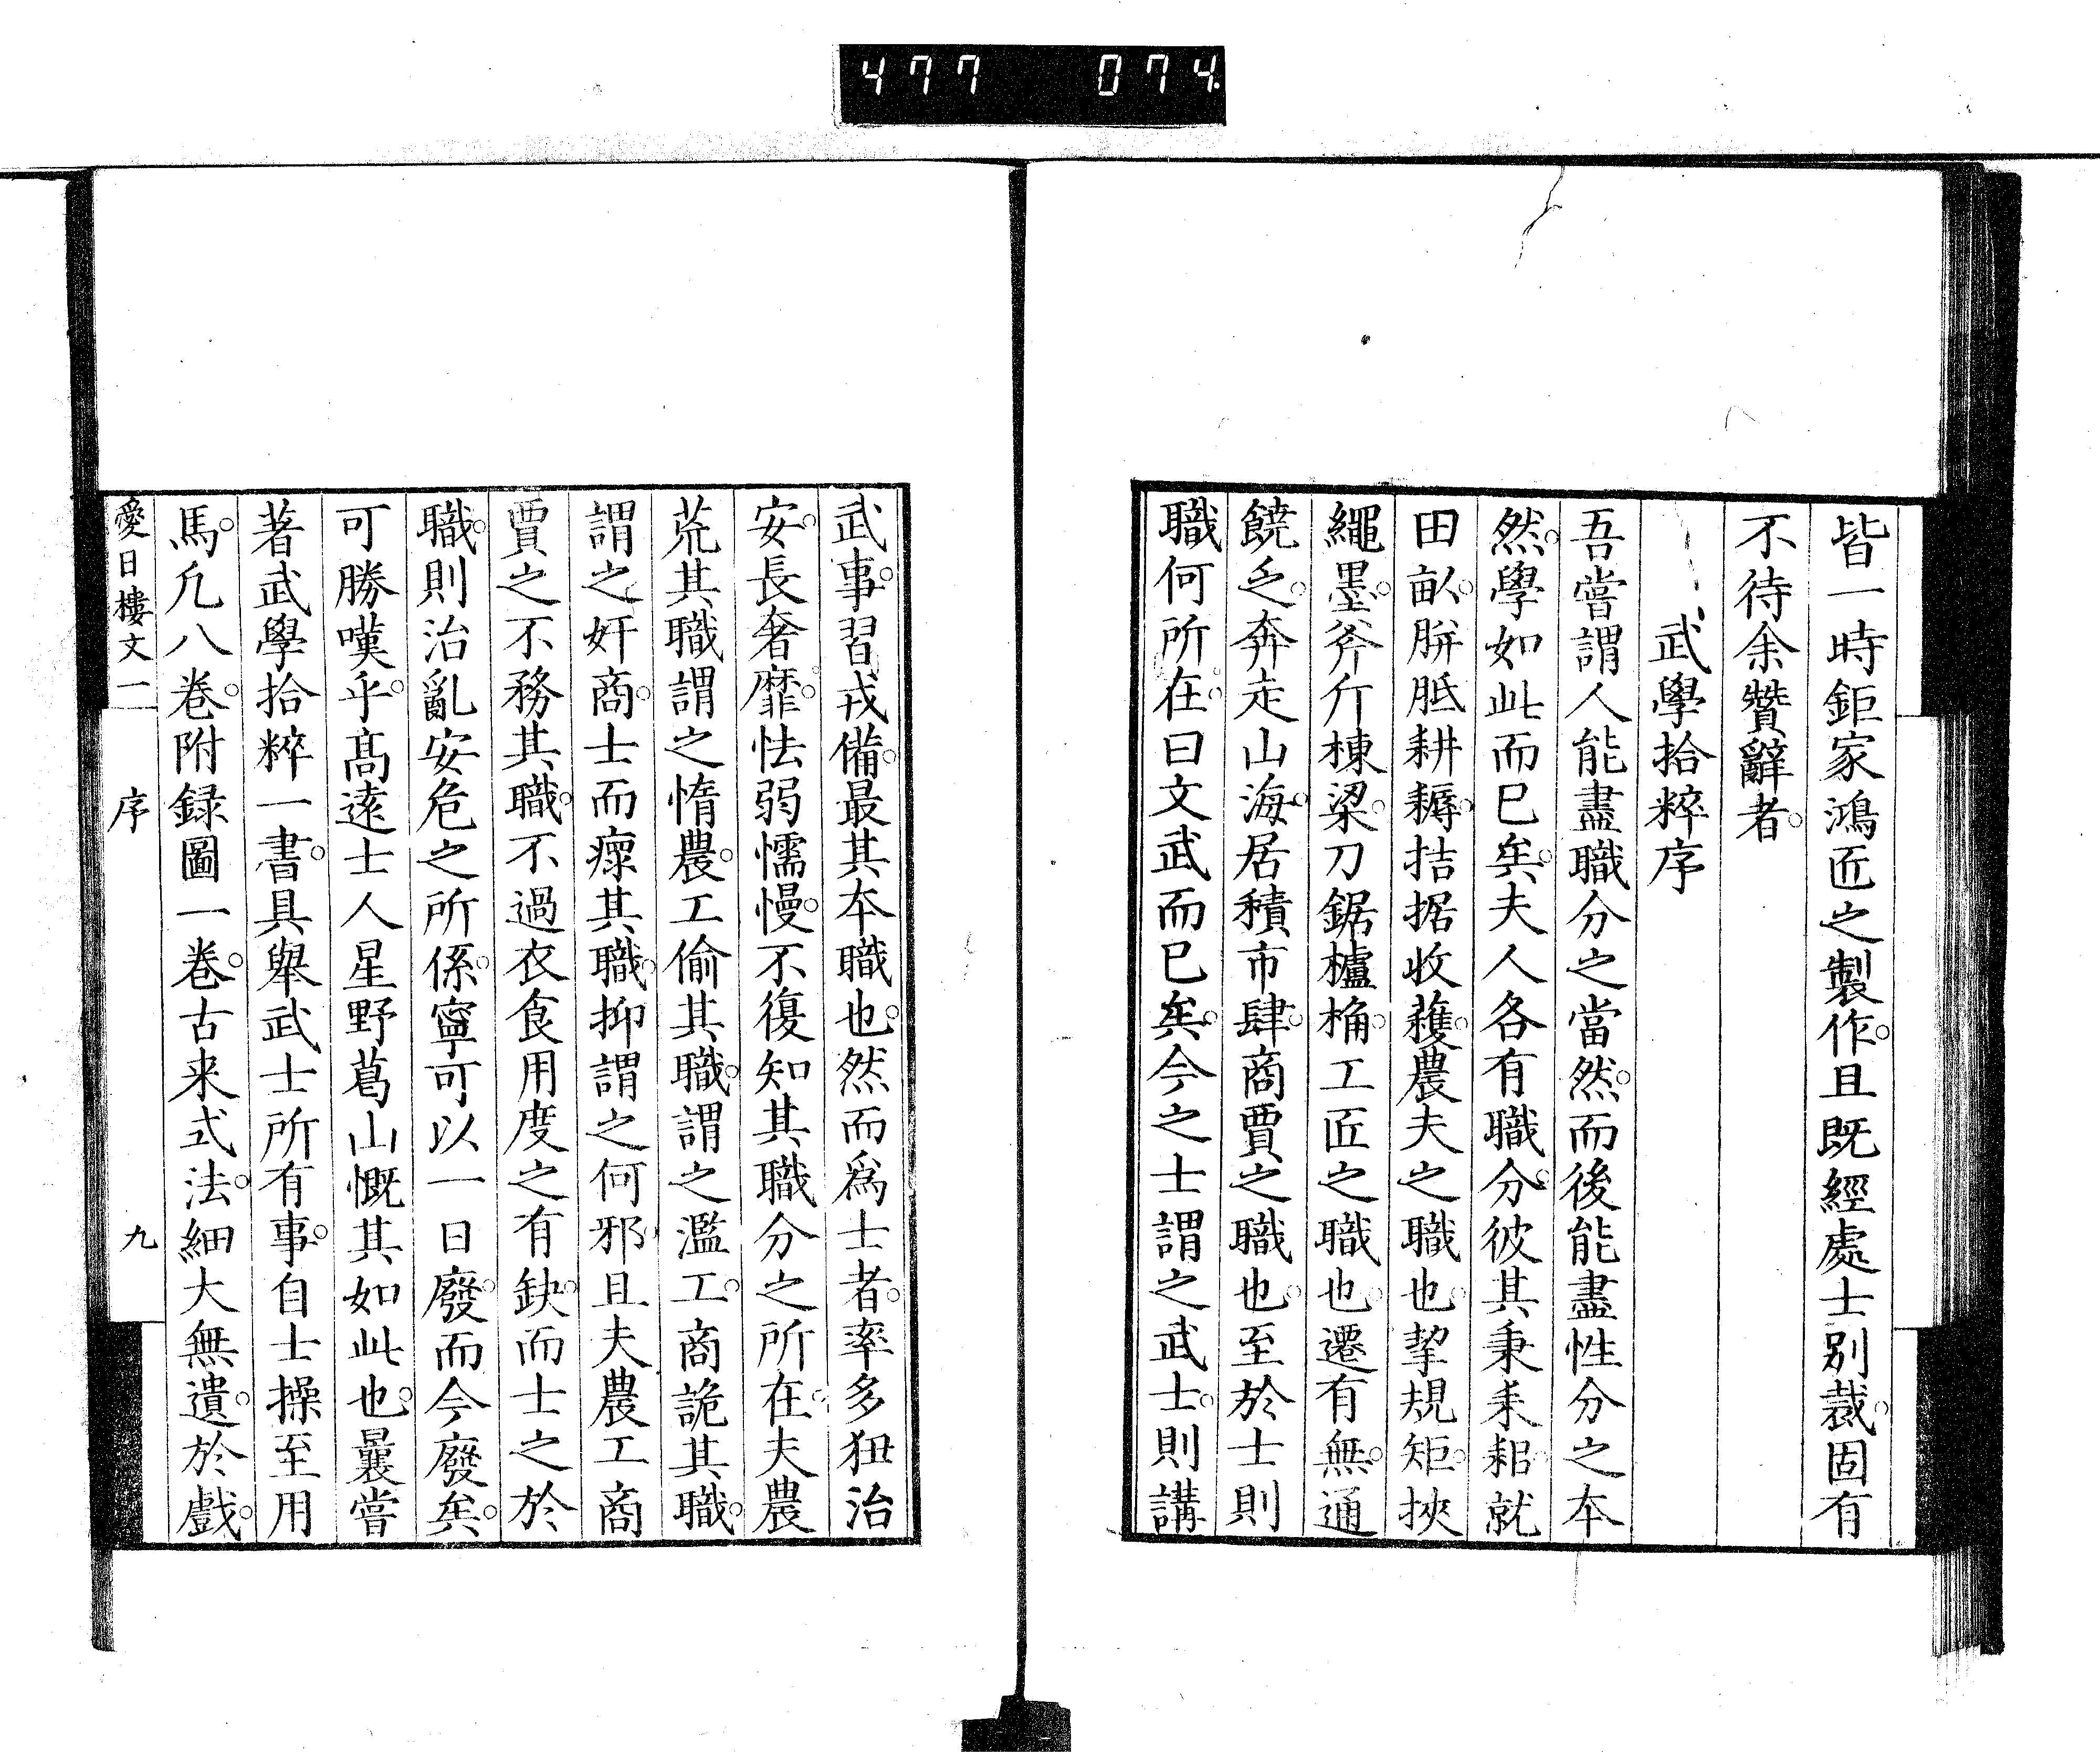 477 074
皆一時鉅家鴻匠之製作。且既經處士別裁。固有
不待余贊辭者。
武學拾粹序
吾嘗謂人能盡職分之當然。而後能盡性分之本
然。學如此而已矣。夫人各有職分。彼其秉耒耜。就
田畝。胼胝耕耨。拮据收穫。農夫之職也。挈規矩。挾
繩墨。斧斤棟梁。刀鋸櫨桷。工匠之職也。遷有無。通
饒乏。奔走山海。居積市肆。商賈之職也。至於士則
職何所在。曰文武而已矣。今之士謂之武士。則講
武事。習戎備。最其本職也。然而爲士者。率多狃治
安。長奢靡。怯弱懦慢。不復知其職分之所在。夫農
荒其職。謂之惰農。工偷其職。謂之濫工。商詭其職。
謂之奸商。士而瘝其職。抑謂之何邪。且夫農工商
賈之不務其職。不過衣食用度之有缺。而士之於
職。則治亂安危之所係。寧可以一日廢。而今廢矣。
可勝嘆乎。高遠士人星野葛山慨其如此也。曩嘗
著武學拾粹一書。具舉武士所有事。自士操至用
馬。凡八卷。附録圖一卷。古来式法。細大無遺。於戲。
愛日樓文二 序 九